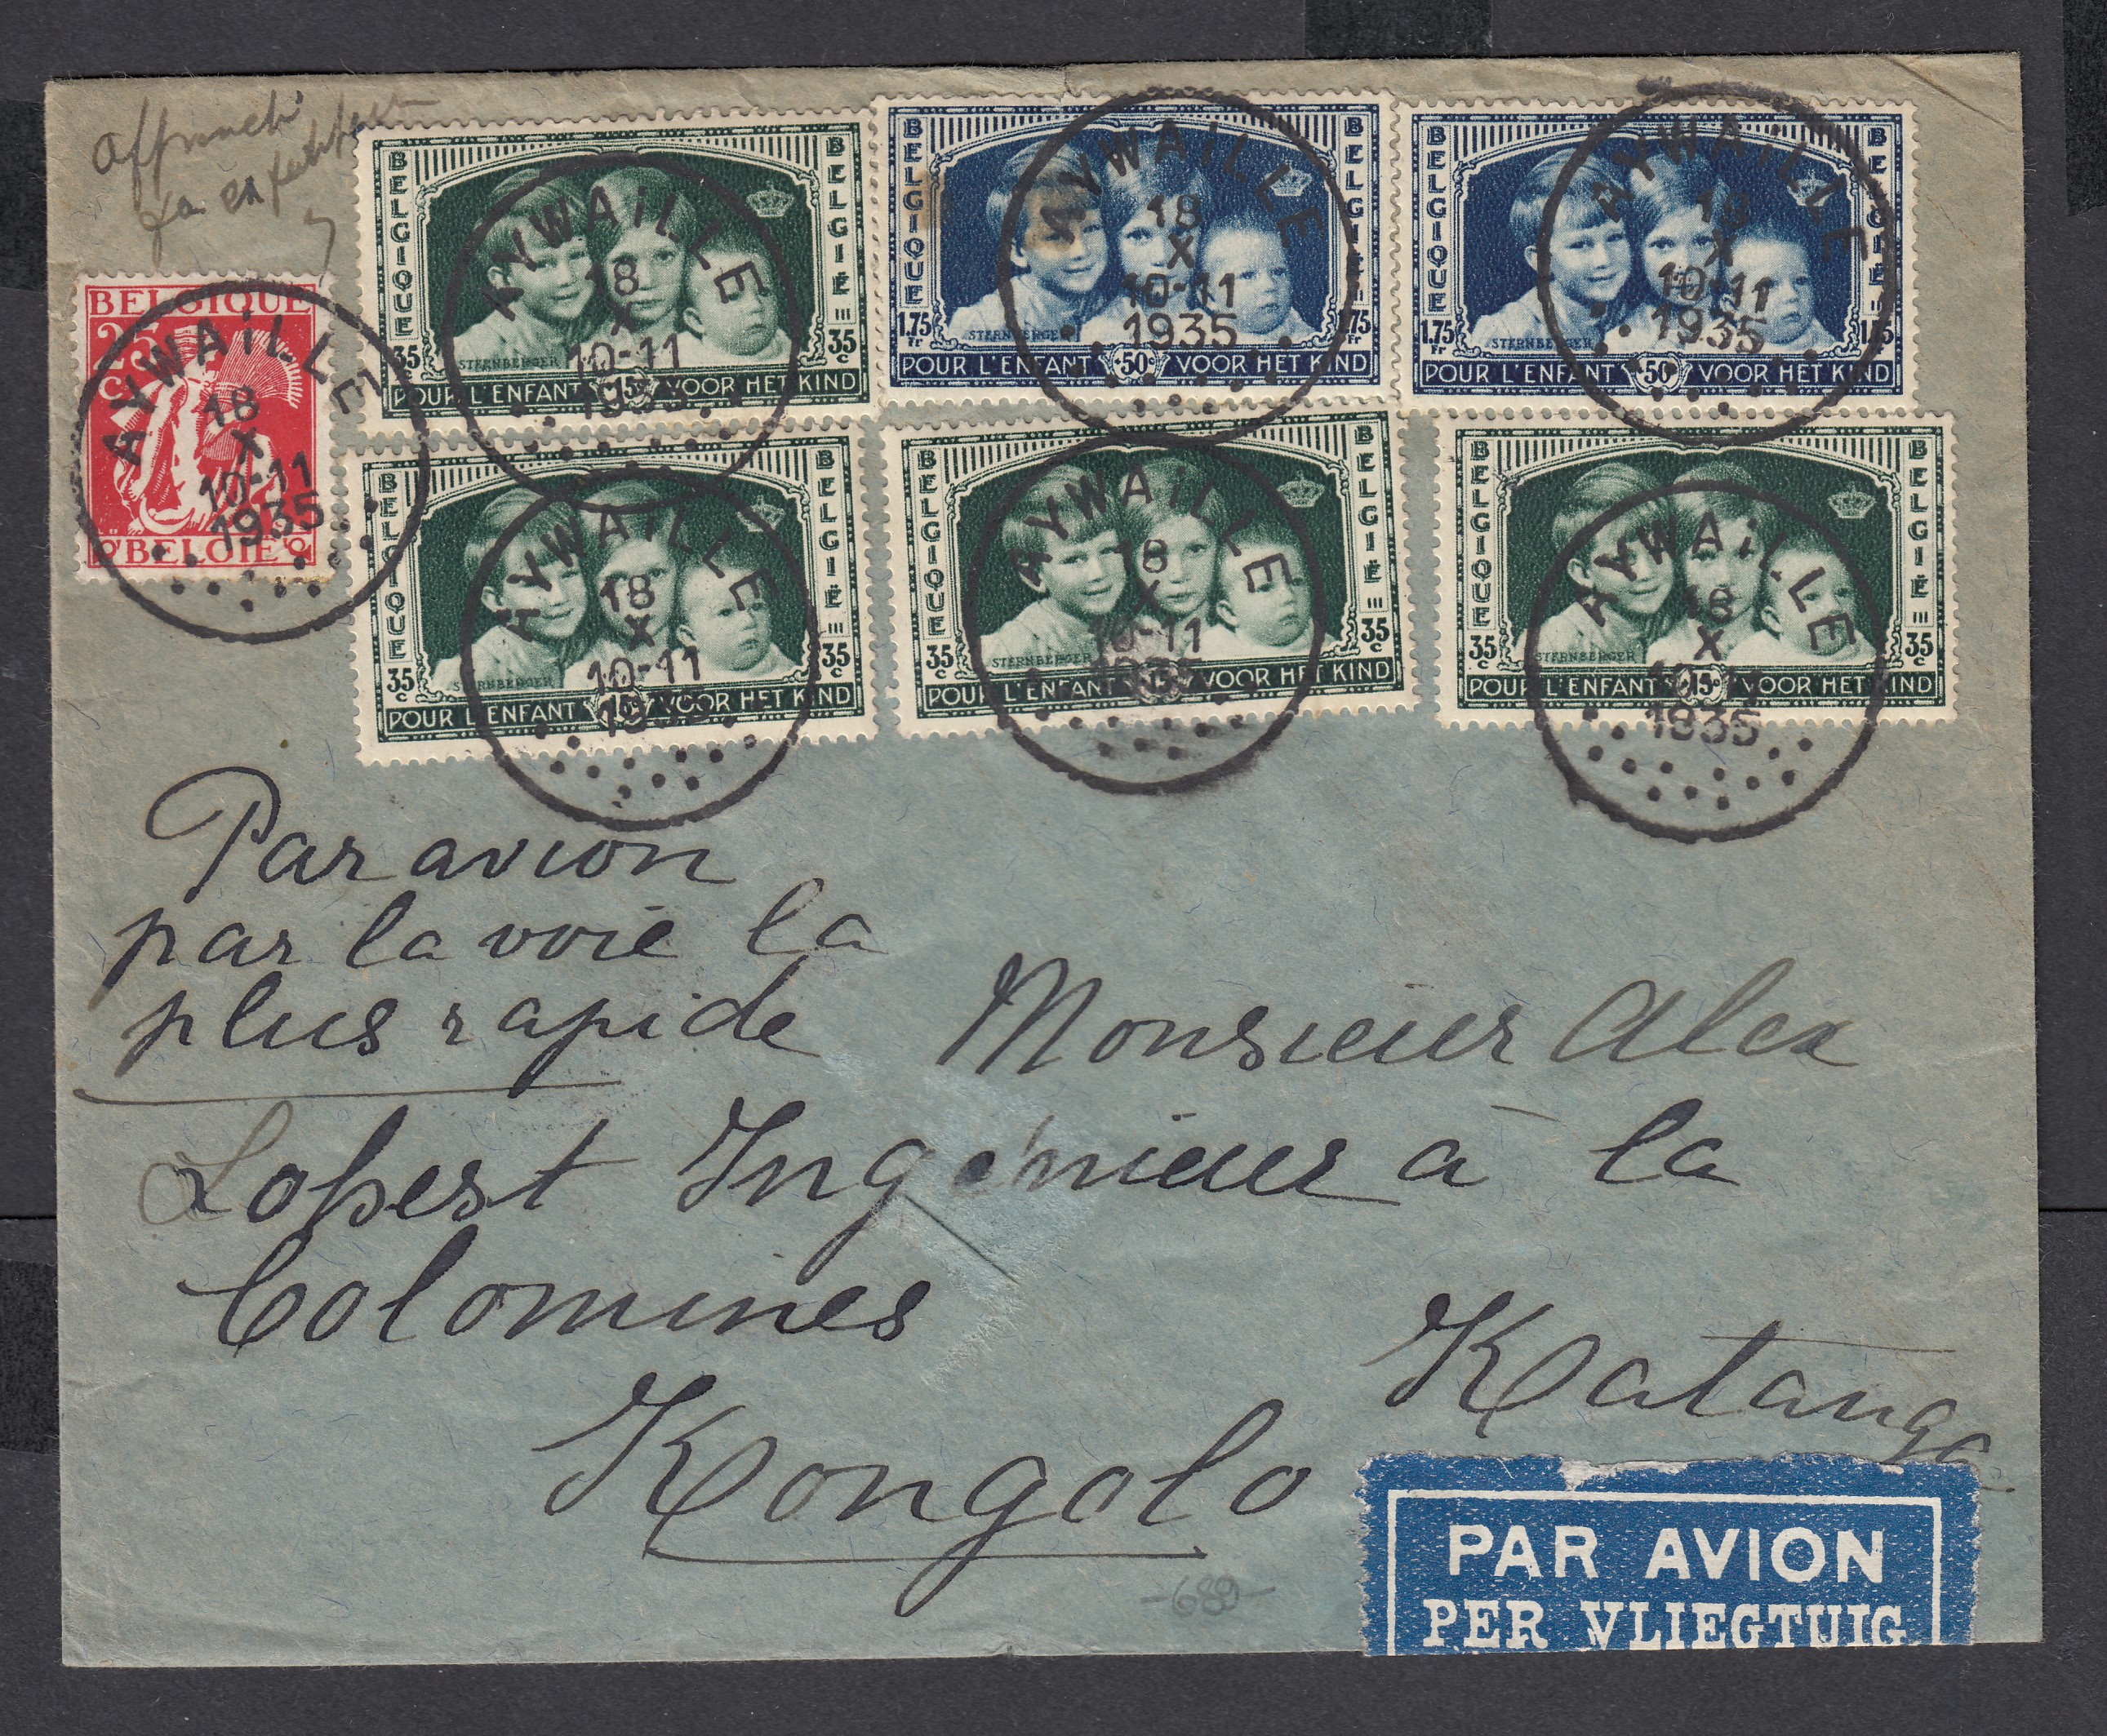 Affranchi
BELGIQUE
25
C
BELGIË
BELGIQUE BELGIË
35 c 35 c
STERNBERGER
POUR L'ENFANT 15c VOOR HET KIND
BELGIQUE BELGIË
1.75 Fr 1.75 Fr
STERNBERGER
POUR L'ENFANT 50c VOOR HET KIND
BELGIQUE BELGIË
1.75 Fr 1.75 Fr
STERNBERGER
POUR L'ENFANT 50c VOOR HET KIND
BELGIQUE BELGIË
35 c 35 c
STERNBERGER
POUR L'ENFANT 15c VOOR HET KIND
BELGIQUE BELGIË
35 c 35 c
STERNBERGER
POUR L'ENFANT 15c VOOR HET KIND
BELGIQUE BELGIË
35 c 35 c
STERNBERGER
POUR L'ENFANT 15c VOOR HET KIND
AYWAiLLE
18
X
10-11
1935
AYWAiLLE
18
X
10-11
1935
AYWAiLLE
18
X
10-11
1935
AYWAiLLE
18
X
10-11
1935
AYWAiLLE
18
X
10-11
1935
AYWAiLLE
18
X
10-11
1935
AYWAiLLE
18
X
10-11
1935
Par avion
par la voie la
plus rapide
Monsieur Alex
Lobest Ingénieur à la
Colomines
Katanga
Kongolo
-689-
PAR AVION
PER VLIEGTUIG